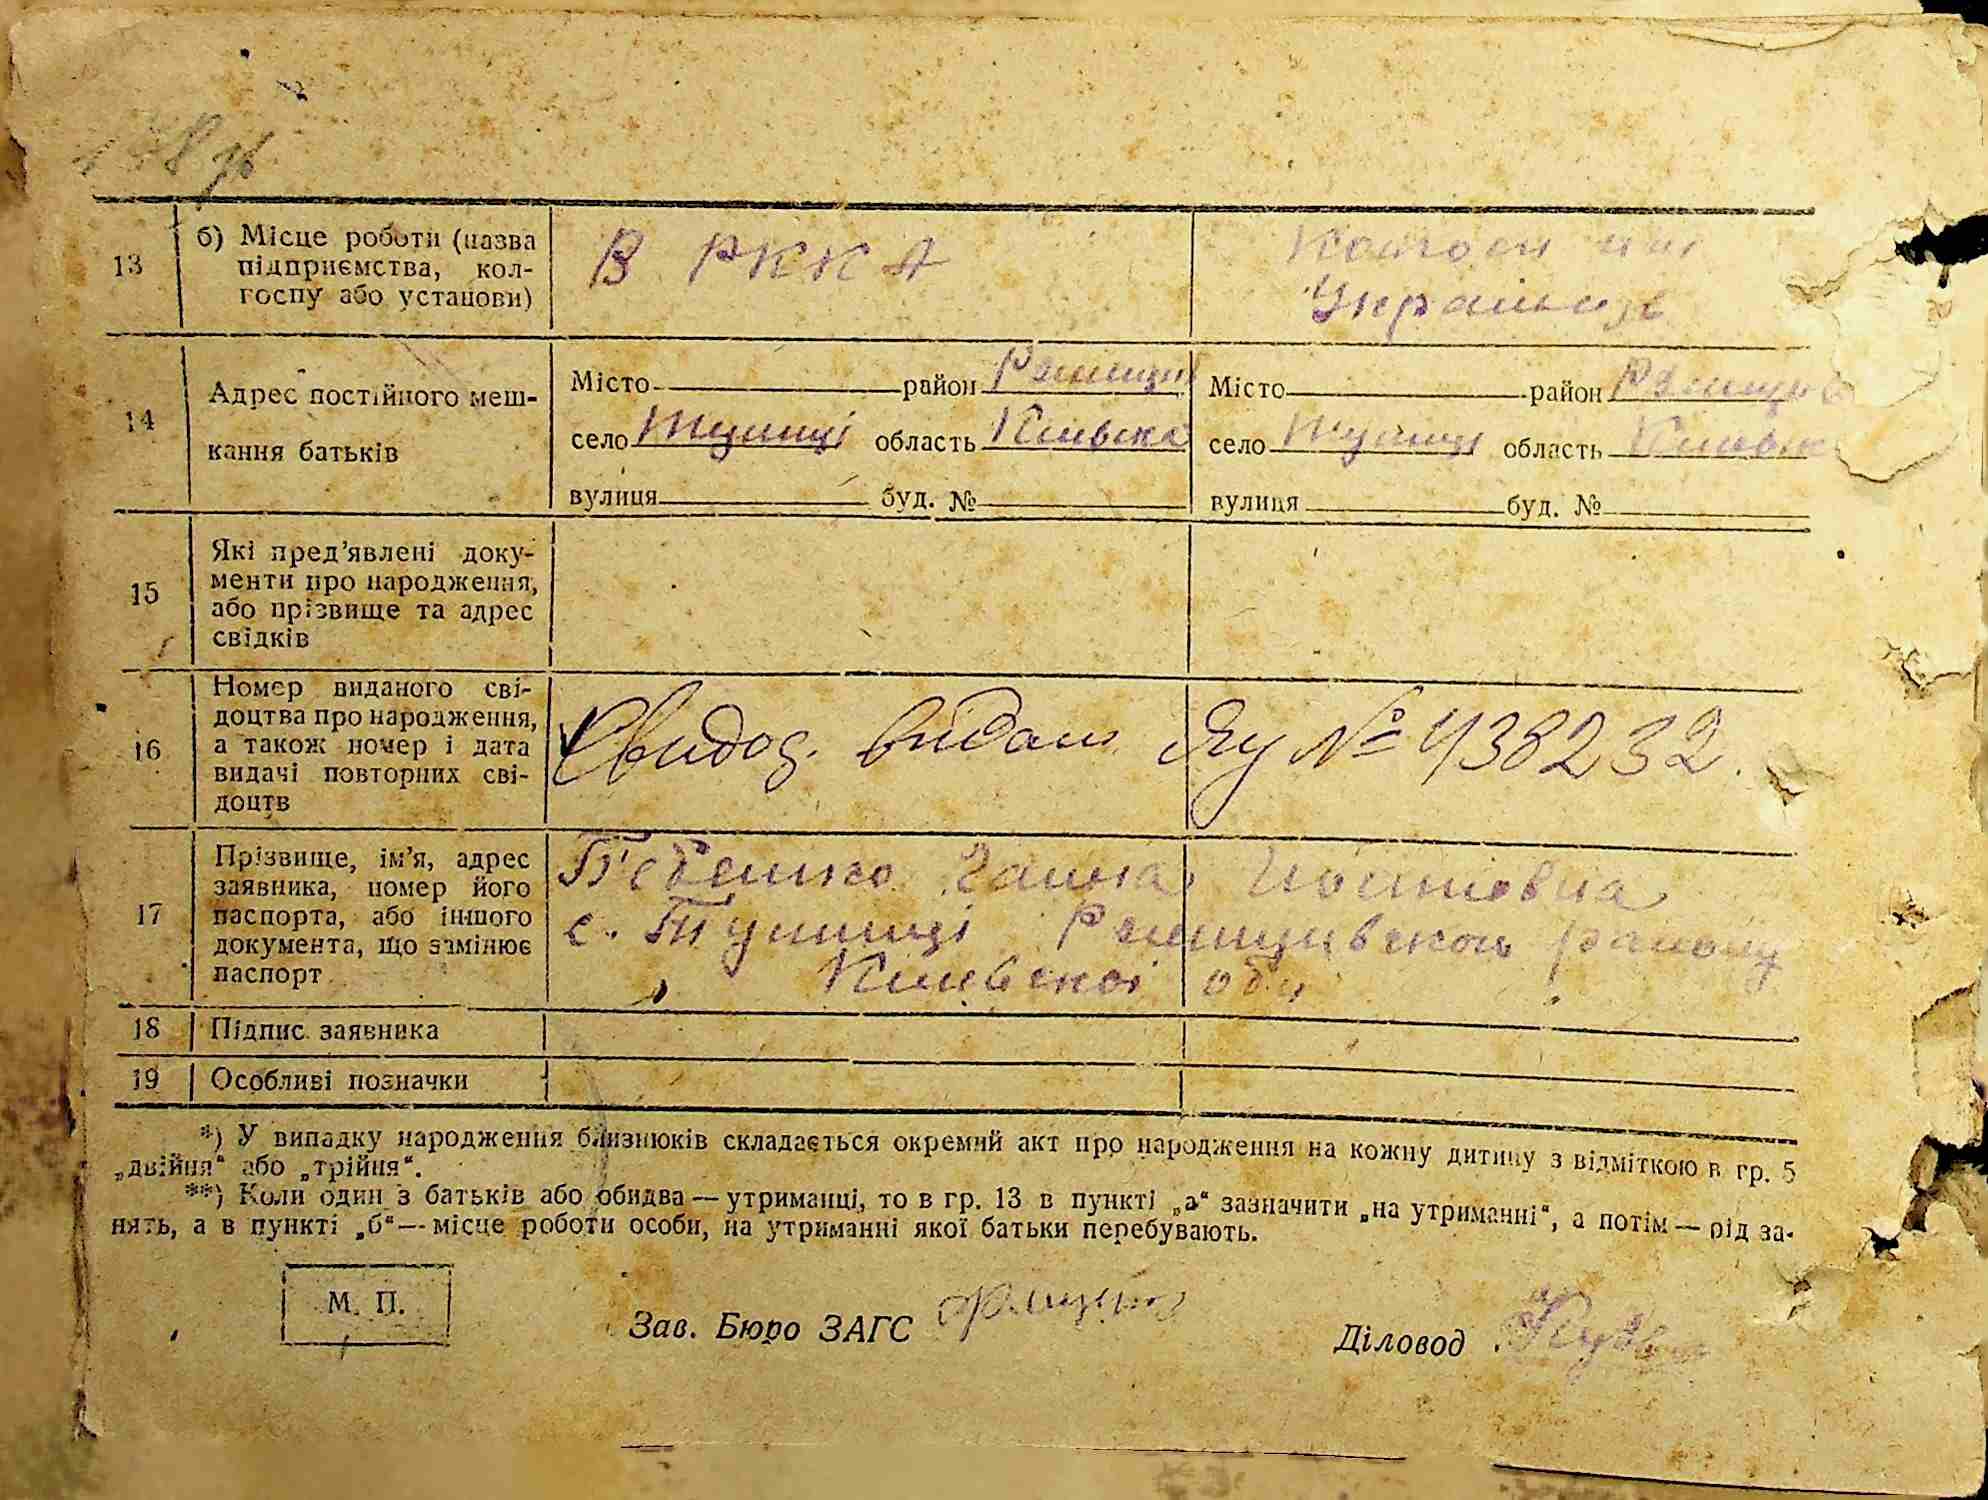 178 зв
13
б) Місце роботи (назва
підприємства, кол-
госпу або установи)
В РККА
Колгосп ім
14
Адрес постійного меш-
кання батьків
Місто район Ржищів
село Тулинці область Київська
вулиця буд. №
Місто район Ржищів
село Тулинці область Київськ
вулиця буд. №
15
Які пред’явлені доку-
менти про народження,
або прізвище та адрес
свідків
16
Номер виданого сві-
доцтва про народження,
а також номер і дата
видачі повторних сві-
доцтв
Свидод. видано Яу № 438232.
17
Прізвище, ім’я, адрес
заявника, номер його
паспорта, або іншого
документа, що замінює
паспорт
Ганна
с. Тулинці Ржищивского району
Київської обл
18 Підпис заявника
19 Особливі позначки
*) У випадку народження близнюків складається окремий акт про народження на кожну дитину з відміткою в гр. 5
„двійня“ або „трійня“.
**) Коли один з батьків або обидва — утриманці, то в гр. 13 в пункті „а“ зазначити „на утриманні“, а потім — рід за-
нять, а в пункті „б“ — місце роботи особи, на утриманні якої батьки перебувають.
М. П.
Зав. Бюро ЗАГС
Діловод